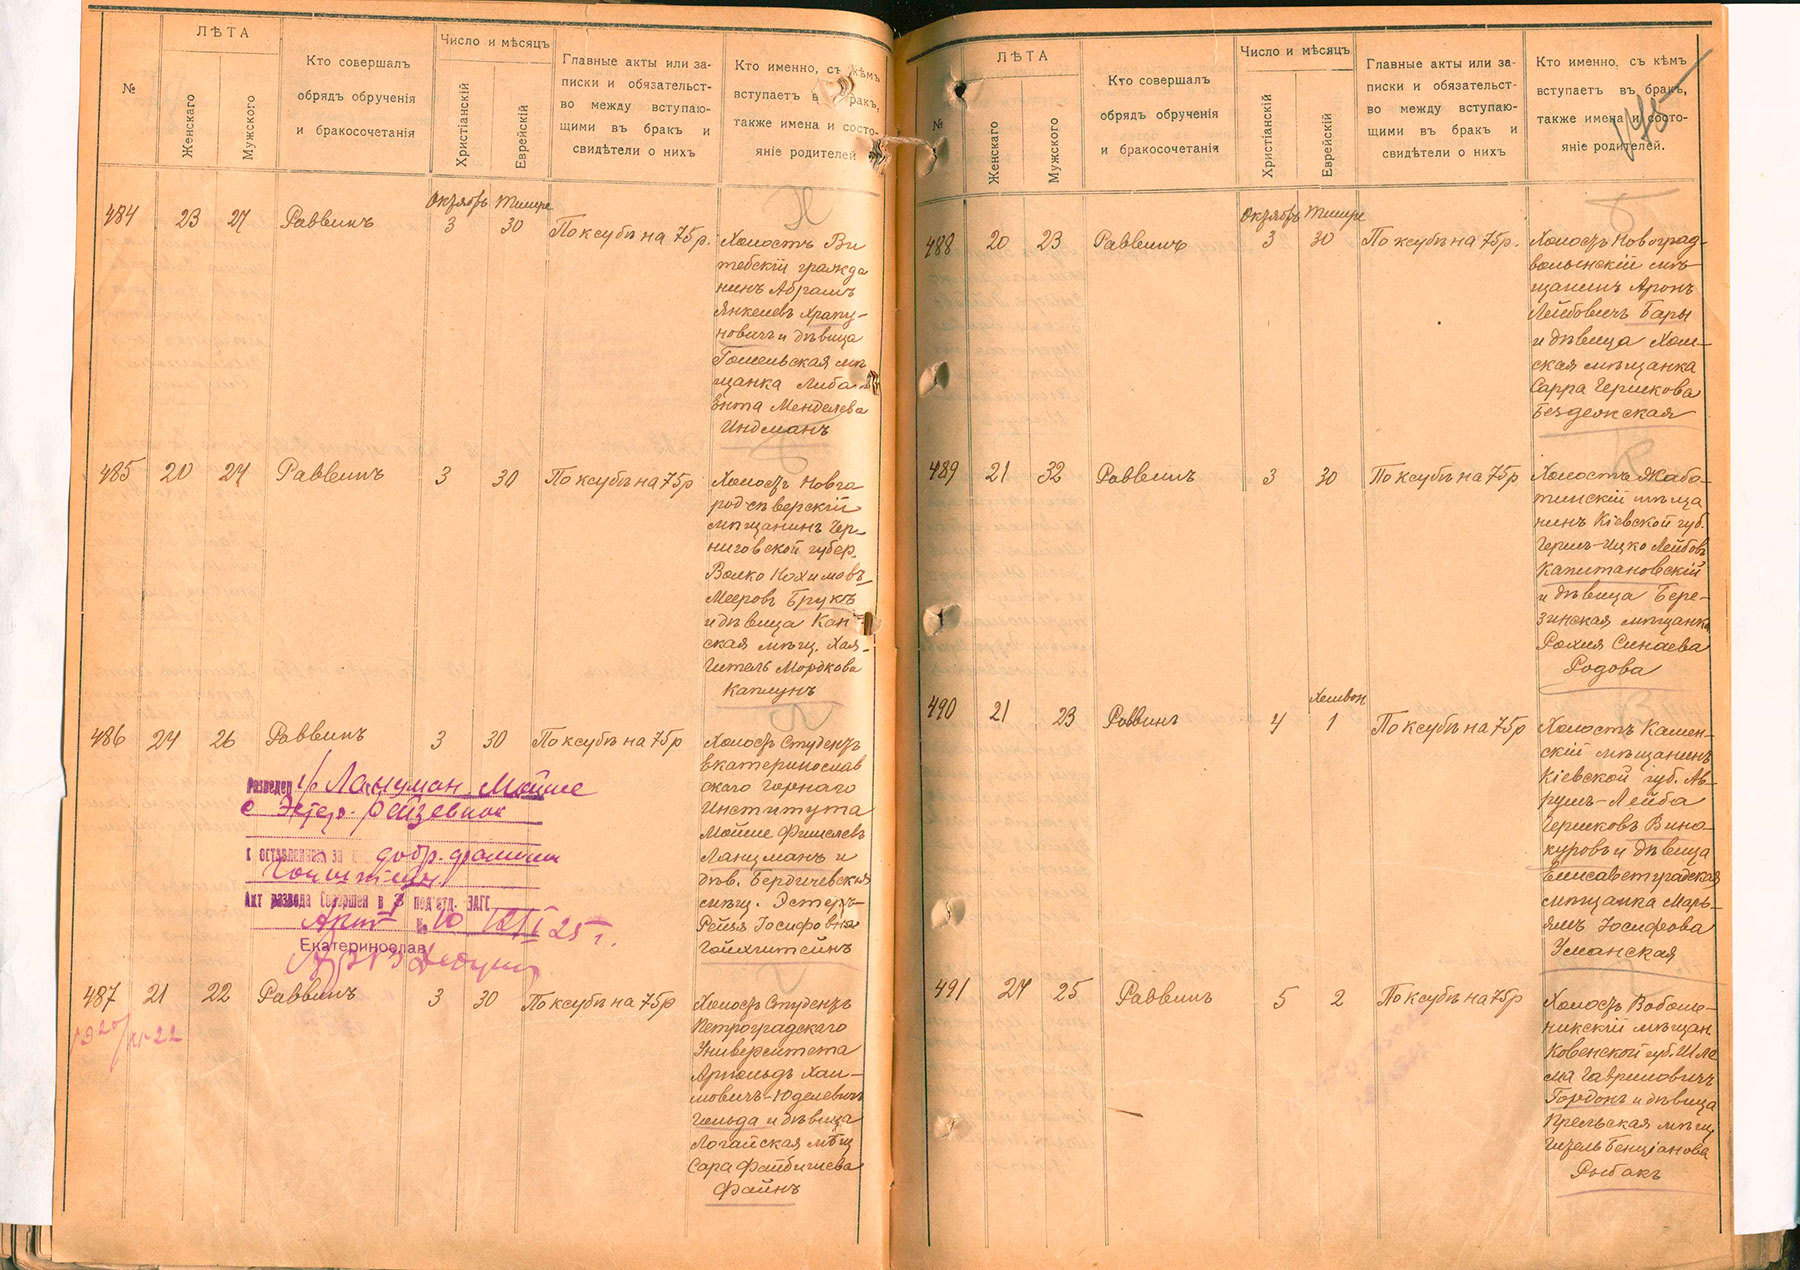 №
ЛѢТА
Женскаго
Мужского
Кто совершалъ
обрядъ обрученія
и бракосочетанія
Число и мѣсяцъ
Христіанскій
Еврейскій
Главные акты или за-
писки и обязательст-
во между вступаю-
щими въ бракъ и
свидѣтели о нихъ
Кто именно, съ кѣмъ
вступаетъ въ бракъ,
также имена и состо-
яніе родителей
484 23 27 Раввинъ
Октябрь Тишре
3 30 По ксубѣ на 75 р.
Холостъ Ви
тебскій гражда
нинъ Абрамъ
Янкелевъ Храпу-
новичъ и дѣвица
Гомельская мѣ
щанка Либа
Ента Менделева
Индманъ
485 20 24 Раввинъ 3 30 По ксубѣ на 75 р
Холостъ Новго
родсѣверскій
мѣщанинъ Чер-
ниговской губер.
Волко Нохимовъ
Мееровъ Брукъ
и дѣвица Кон
ская мѣщ. Хая-
Гитель Мордкова
Каплунъ
486 24 26 Раввинъ 3 30 По ксубѣ на 75 р
Холостъ Студентъ
Екатеринослав
скаго Горнаго
Института
Мойше Фишелевъ
Ланцманъ и
дѣв. Бердичевская
мѣщ. Эстеръ-
Рейзя Іосифовна
Гойхштейнъ
Разведен гр Ланцман Мойше
с Эстер-Рейзевной
с оставлением за добр. фамилии
Акт развода Совершен в 3 под'отд. ЗАГС
Акт № 10
25 г.
Екатеринослав
487 21 22 Раввинъ 3 30 По ксубѣ на 75 р
Холостъ Студентъ
Петроградскаго
Университета
Арнольдъ Хаи-
мовичъ-Юделевичъ
Гельда и дѣвица
Логайская мѣщ
Сара Файбишева
Файнъ
№
ЛѢТА
Женскаго
Мужского
Кто совершалъ
обрядъ обрученія
и бракосочетанія
Число и мѣсяцъ
Христіанскій
Еврейскій
Главные акты или за-
писки и обязательст-
во между вступаю-
щими въ бракъ и
свидѣтели о нихъ
Кто именно, съ кѣмъ
вступаетъ въ бракъ,
также имена и состо-
яніе родителей.
488 20 23 Раввинъ
Октябрь Тишре
3 30 По ксубѣ на 75 р.
Холостъ Новоград-
волынскій мѣ-
щанинъ Аронъ
Лейбовичъ Бары
и дѣвица Хом-
ская мѣщанка
Сарра Гершкова
Бездежская
489 21 32 Раввинъ 3 30 По ксубѣ на 75 р
Холостъ Жабо-
тинскій мѣща
нинъ Кіевской губ.
Герш-Ицко Лейбов
Капитановскій
и дѣвица Бере-
зинская мѣщанка
Рохля Синаева
Родова
490 21 23 Раввинъ 4
Хешвон
1 По ксубѣ на 75 р
Холостъ Камен-
скій мѣщанинъ
Кіевской губ. Ав-
румъ-Лейба
Гершковъ Вино-
куровъ и дѣвица
Елисаветградская
мѣщанка Марь-
ямъ Іосифова
Уманская
491 24 25 Раввинъ 5 2 По ксубѣ на 75 р
Холостъ Вобольни-
никскій мѣщан
Ковенской губ. Шле
ма Гавриловичъ
Гордонъ и дѣвица
мѣщ
Гизель Бенціанова
Рыбакъ